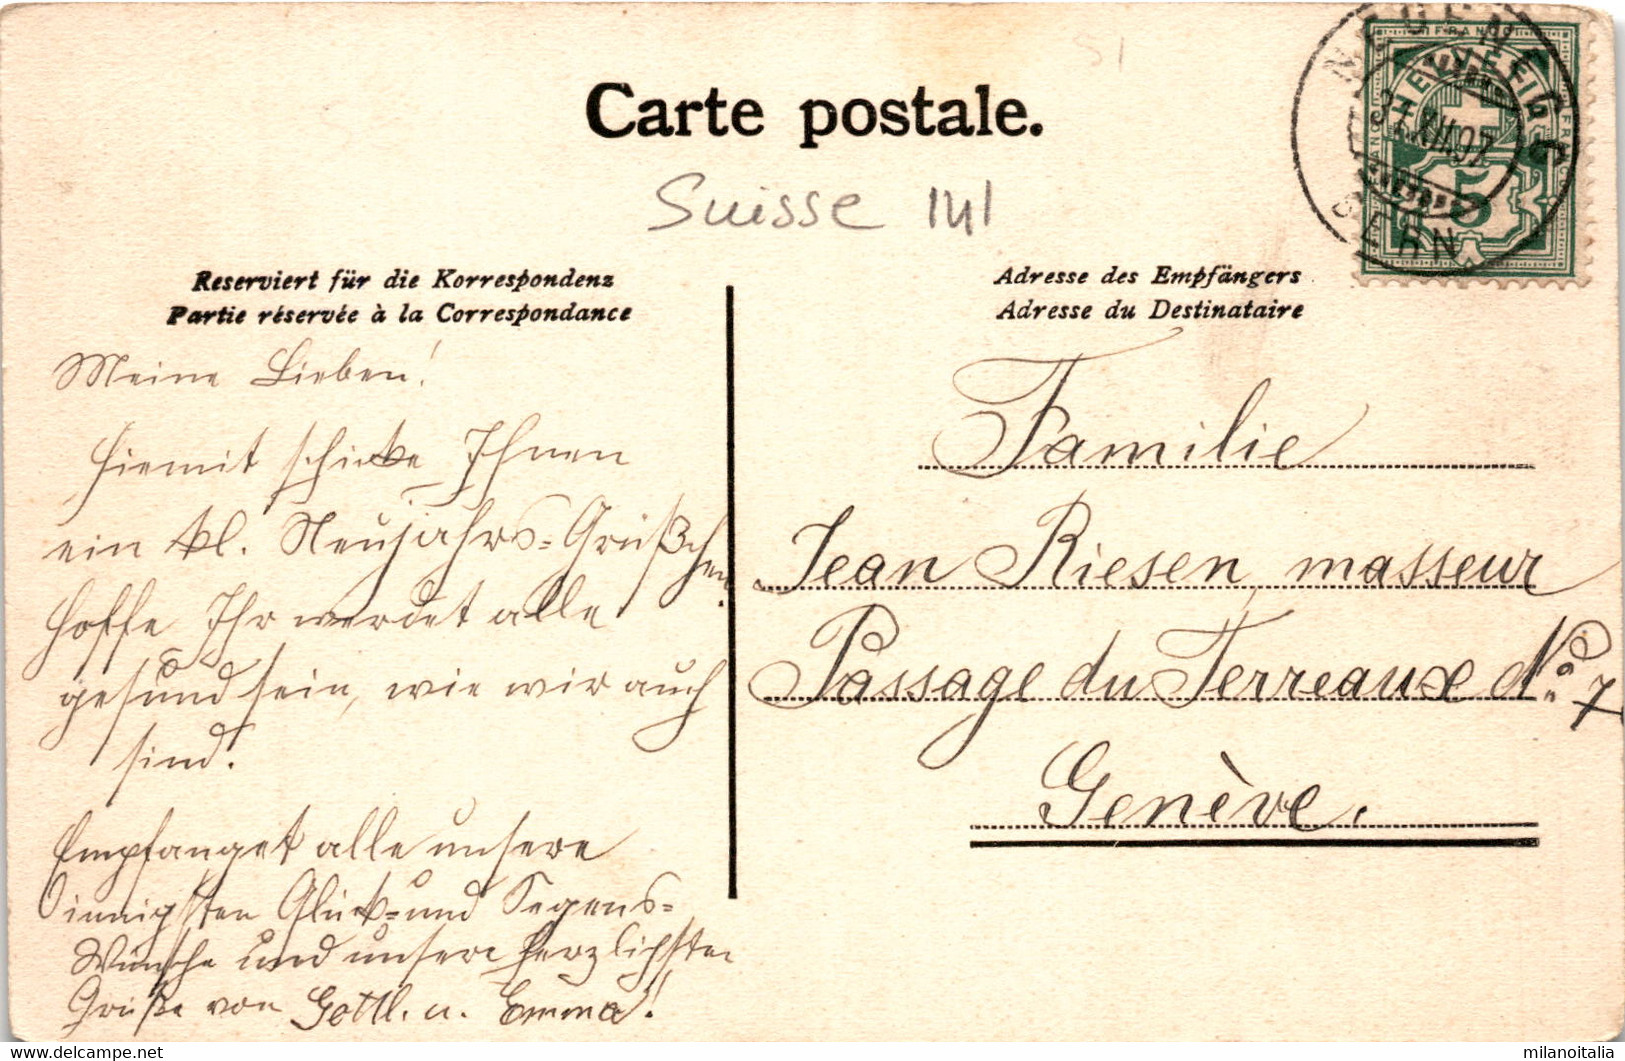 Carte postale.
Suisse 141
51
NEUENEGG
31.XII.07
BERN
FRANCO
HELVETIA
5
Reserviert für die Korrespondenz
Partie réservée à la Correspondance
Adresse des Empfängers
Adresse du Destinataire
Meine Lieben!
Hiemit schicke Ihnen
ein kl. Neujahrs-Grüßchen
hoffe Ihr werdet alle
gesund sein, wie wir auch
sind.
Empfanget alle unsere
innigsten Glück- und Segens-
Wünsche und unsere herzlichsten
Grüße von Gottl. u. Emma!
Familie
Jean Riesen masseur
Passage du Terreaux No 7
Genève.
milanoitalia